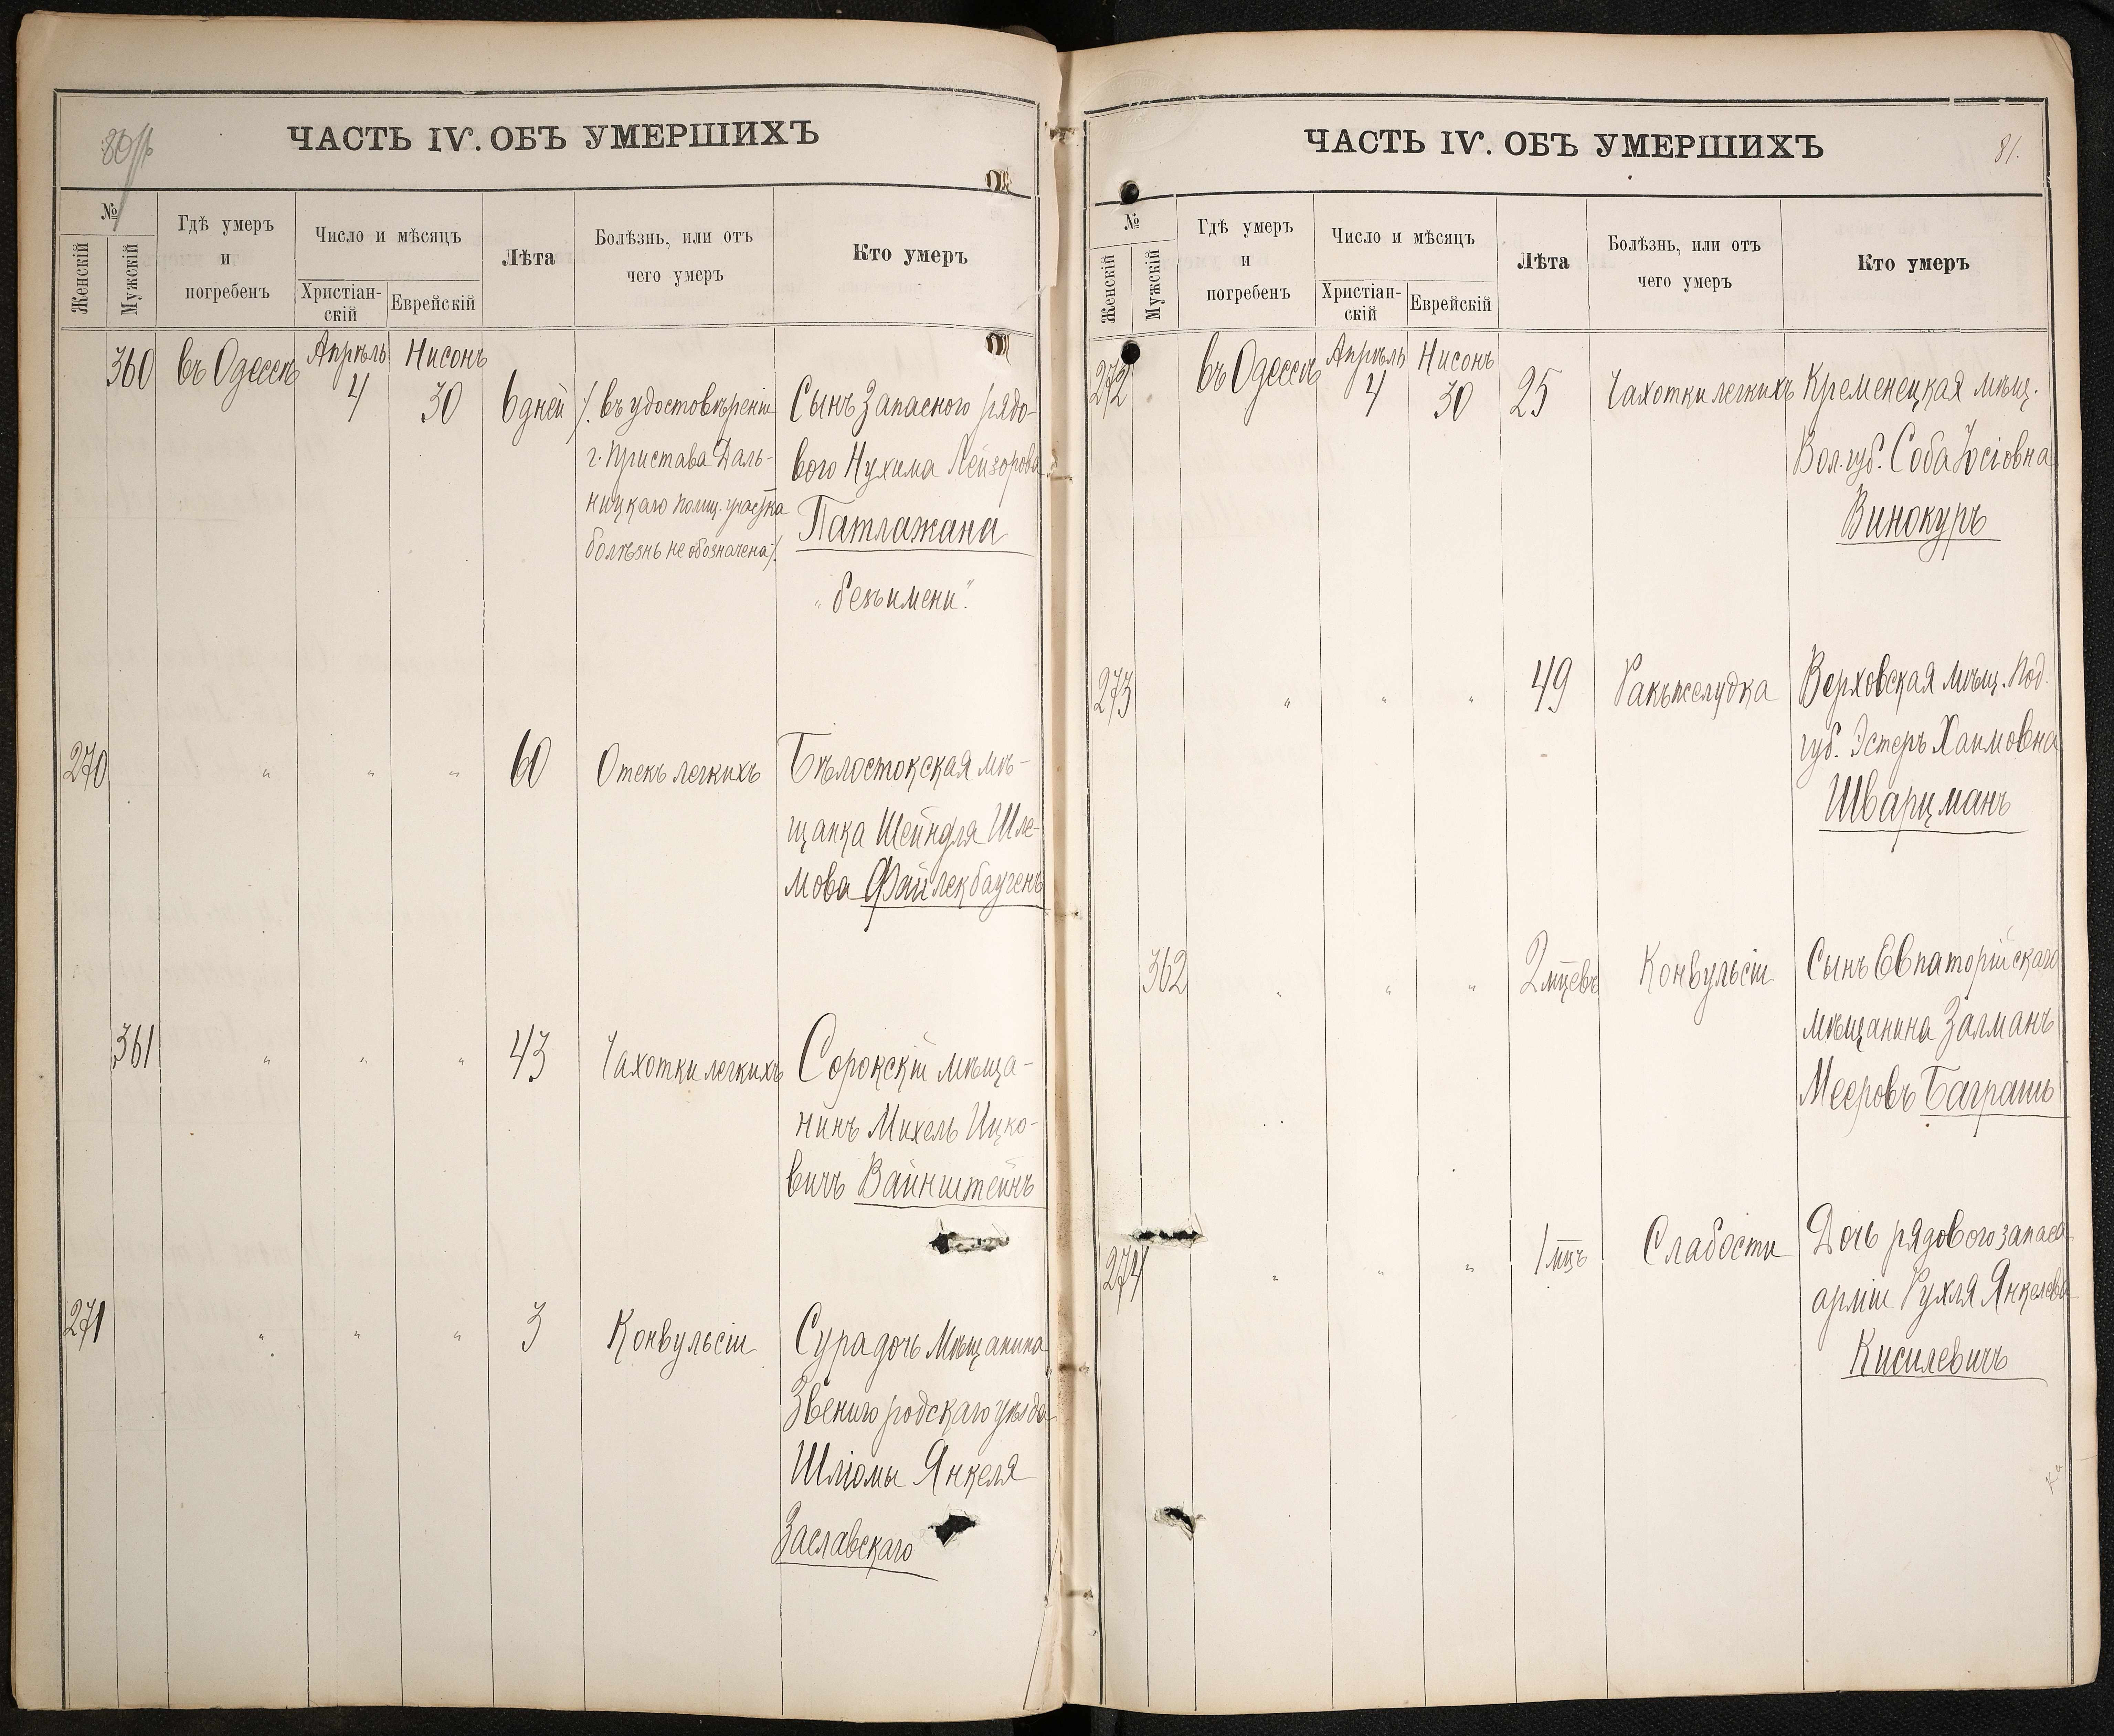 ЧАСТЬ IV. ОБЪ УМЕРШИХЪ
№
Женскій
Мужскій
Гдѣ умеръ
и
погребенъ
Число и мѣсяцъ
Христіан-
скій
Еврейскій
Лѣта
Болѣзнь, или отъ
чего умеръ
Кто умеръ
360 въ Одессѣ Апрѣль 4 Нисонъ 30 6 дней /. въ удостовѣреніи Сынъ Запаснаго рядо-
г. Пристава Даль- вого Нухима Лейзорова
ницкаго полиц. участка Патлажана
болѣзнь не обозначена /. „безъ имени".
270 " " " 60 Отекъ легкихъ Бѣлостокская мѣ-
щанка Шейндля Шле-
мова
361 " " " 43 Чахотки легкихъ Сорокскій мѣща-
нинъ Михель Ицко-
вичъ Вайнштейнъ
271 " " " 3 Конвульсіи Сура дочь мѣщанина
Звенигородскаго уѣзда
Шлiомы Янкеля
Заславскаго
ЧАСТЬ IV. ОБЪ УМЕРШИХЪ
81.
№
Женскій
Мужскій
Гдѣ умеръ
и
погребенъ
Число и мѣсяцъ
Христіан-
скій
Еврейскій
Лѣта
Болѣзнь, или отъ
чего умеръ
Кто умеръ
272 въ Одессѣ Апрѣль 4 Нисонъ 30 25 Чахотки легкихъ Кременецкая мѣщ.
Вол. губ. Соба Іосіовна
Винокуръ
273 " " " 49 Ракъ желудка Верховская мѣщ. Под.
губ. Эстеръ Хаимовна
Шварцманъ
362 " " " 2 мцевъ Конвульсіи Сынъ Евпаторійскаго
мѣщанина Залманъ
Мееровъ Баграшъ
274 " " " 1 мцъ Слабости Дочь рядового запаса
арміи Рухля Янкелева
Кисилевичъ